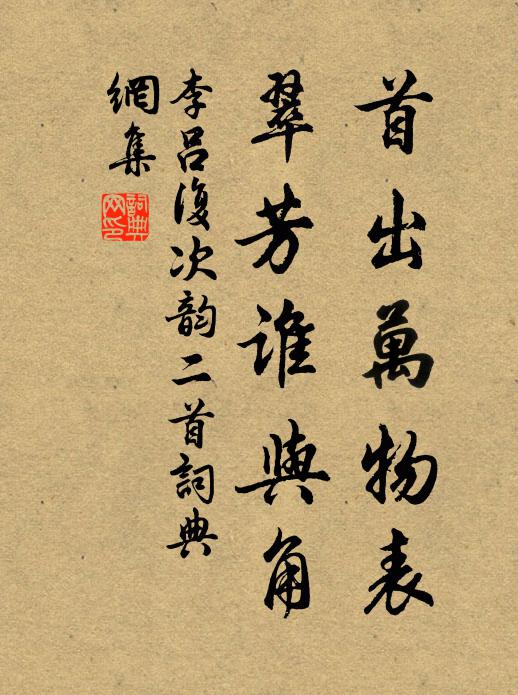 首出萬物表
翠芳誰與角
李呂復次韵二首詞典
網集
詞典網印